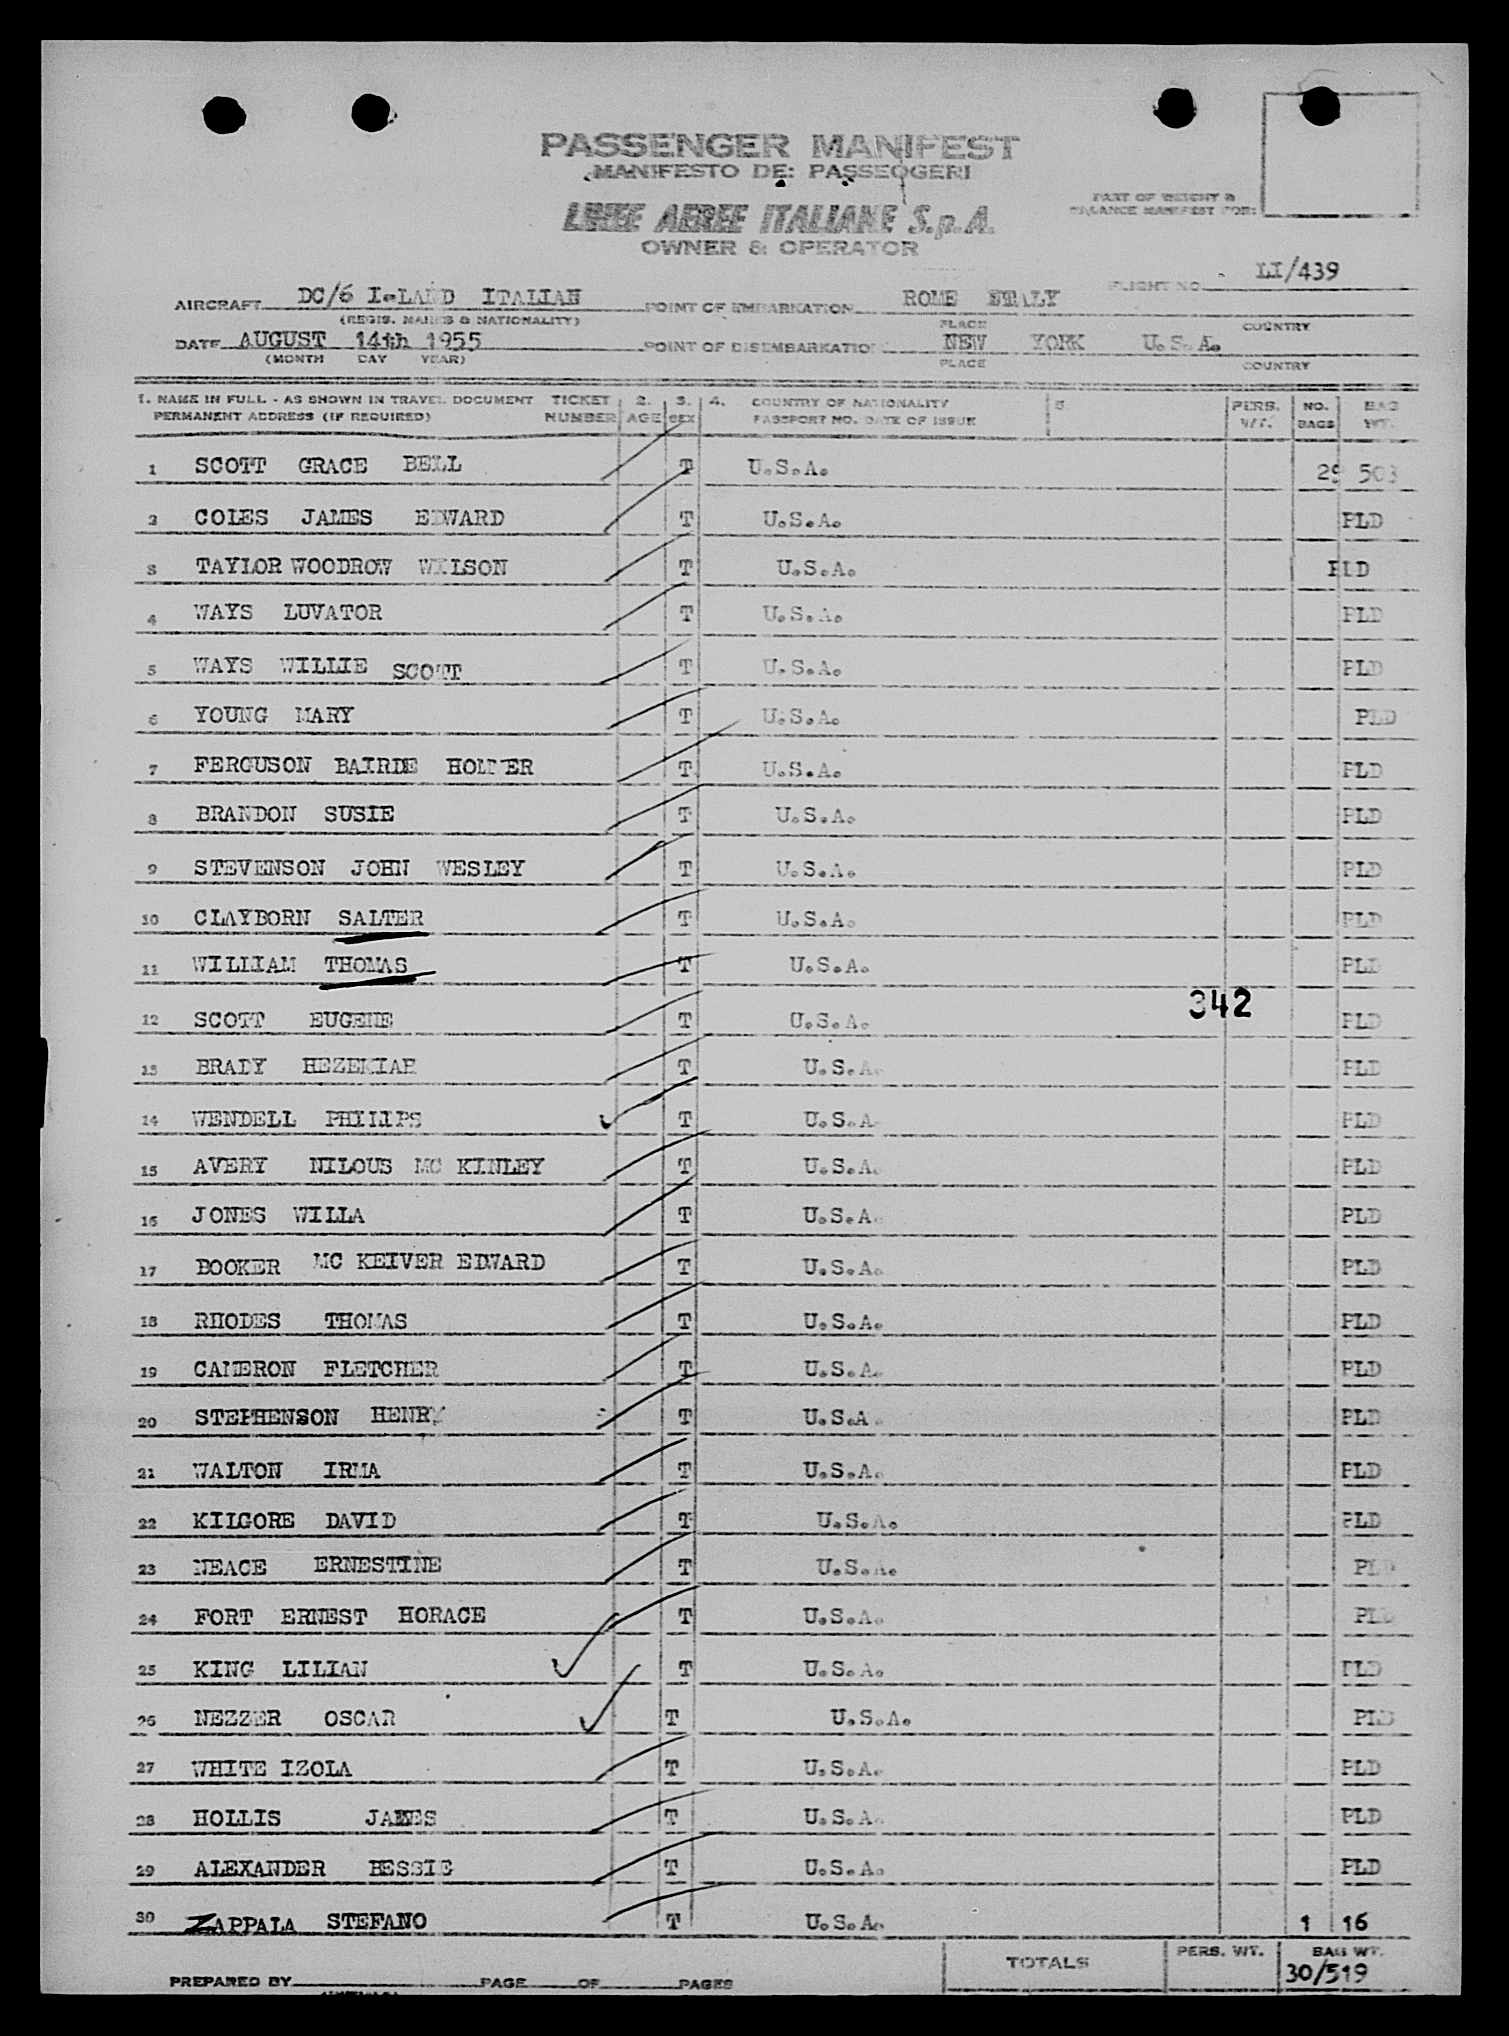 PASSENGER MANIFEST
MANIFESTO DE: PASSEGGERI
LINEE AEREE ITALIANE S.p.A.
OWNER & OPERATOR
PART OF WEIGHT &
BALANCE MANIFEST FOR:
FLIGHT NO. LI/439
AIRCRAFT DC/6 I-LADD ITALIAN POINT OF EMBARKATION ROME ITALY
(REGIS. MARKS & NATIONALITY) PLACE COUNTRY
DATE AUGUST 14th 1955 POINT OF DISEMBARKATION NEW YORK U.S.A.
(MONTH DAY YEAR) PLACE COUNTRY
1. NAME IN FULL - AS SHOWN IN TRAVEL DOCUMENT TICKET 2. 3. 4. COUNTRY OF NATIONALITY 5 PERS. NO. BAG
PERMANENT ADDRESS (IF REQUIRED) NUMBER AGE SEX PASSPORT NO. DATE OF ISSUE WT. BAGS WT.
1 SCOTT GRACE BELL T U.S.A. 29 503
2 COLES JAMES EDWARD T U.S.A. PLD
3 TAYLOR WOODROW WILSON T U.S.A. PLD
4 WAYS LUVATOR T U.S.A. PLD
5 WAYS WILLIE SCOTT T U.S.A. PLD
6 YOUNG MARY T U.S.A. PLD
7 FERGUSON BAIRDE T U.S.A. PLD
8 BRANDON SUSIE T U.S.A. PLD
9 STEVENSON JOHN WESLEY T U.S.A. PLD
10 CLAYBORN SALTER T U.S.A. PLD
11 WILLIAM THOMAS T U.S.A. PLD
342
12 SCOTT EUGENE T U.S.A. PLD
13 BRADY HEZEKIAH T U.S.A. PLD
14 WENDELL PHILIPS T U.S.A. PLD
15 AVERY NILOUS MC KINLEY T U.S.A. PLD
16 JONES WILLA T U.S.A. PLD
17 BOOKER MC KEIVER EDWARD T U.S.A. PLD
18 RHODES THOMAS T U.S.A. PLD
19 CAMERON FLETCHER T U.S.A. PLD
20 STEPHENSON HENRY T U.S.A. PLD
21 WALTON IRMA T U.S.A. PLD
22 KILGORE DAVID T U.S.A. PLD
23 NEACE ERNESTINE T U.S.A. PLD
24 FORT ERNEST HORACE T U.S.A. PLD
25 KING LILIAN T U.S.A. PLD
26 NEZZER OSCAR T U.S.A. PLD
27 WHITE IZOLA T U.S.A. PLD
28 HOLLIS JAMES T U.S.A. PLD
29 ALEXANDER BESSIE T U.S.A. PLD
30 ZAPPALA STEFANO T U.S.A. 1 16
TOTALS PERS. WT. BAG WT.
30/519
PREPARED BY PAGE OF PAGES